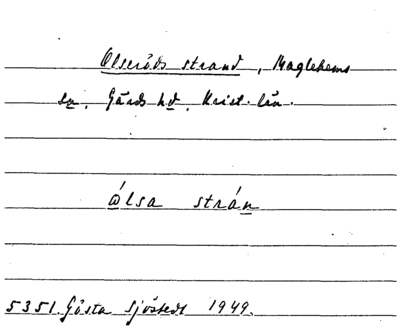 Olseröds strand, Maglehems
sn, Gärds hd, Krist. län.
ålsa strán
5351. Gösta Sjöstedt 1949.